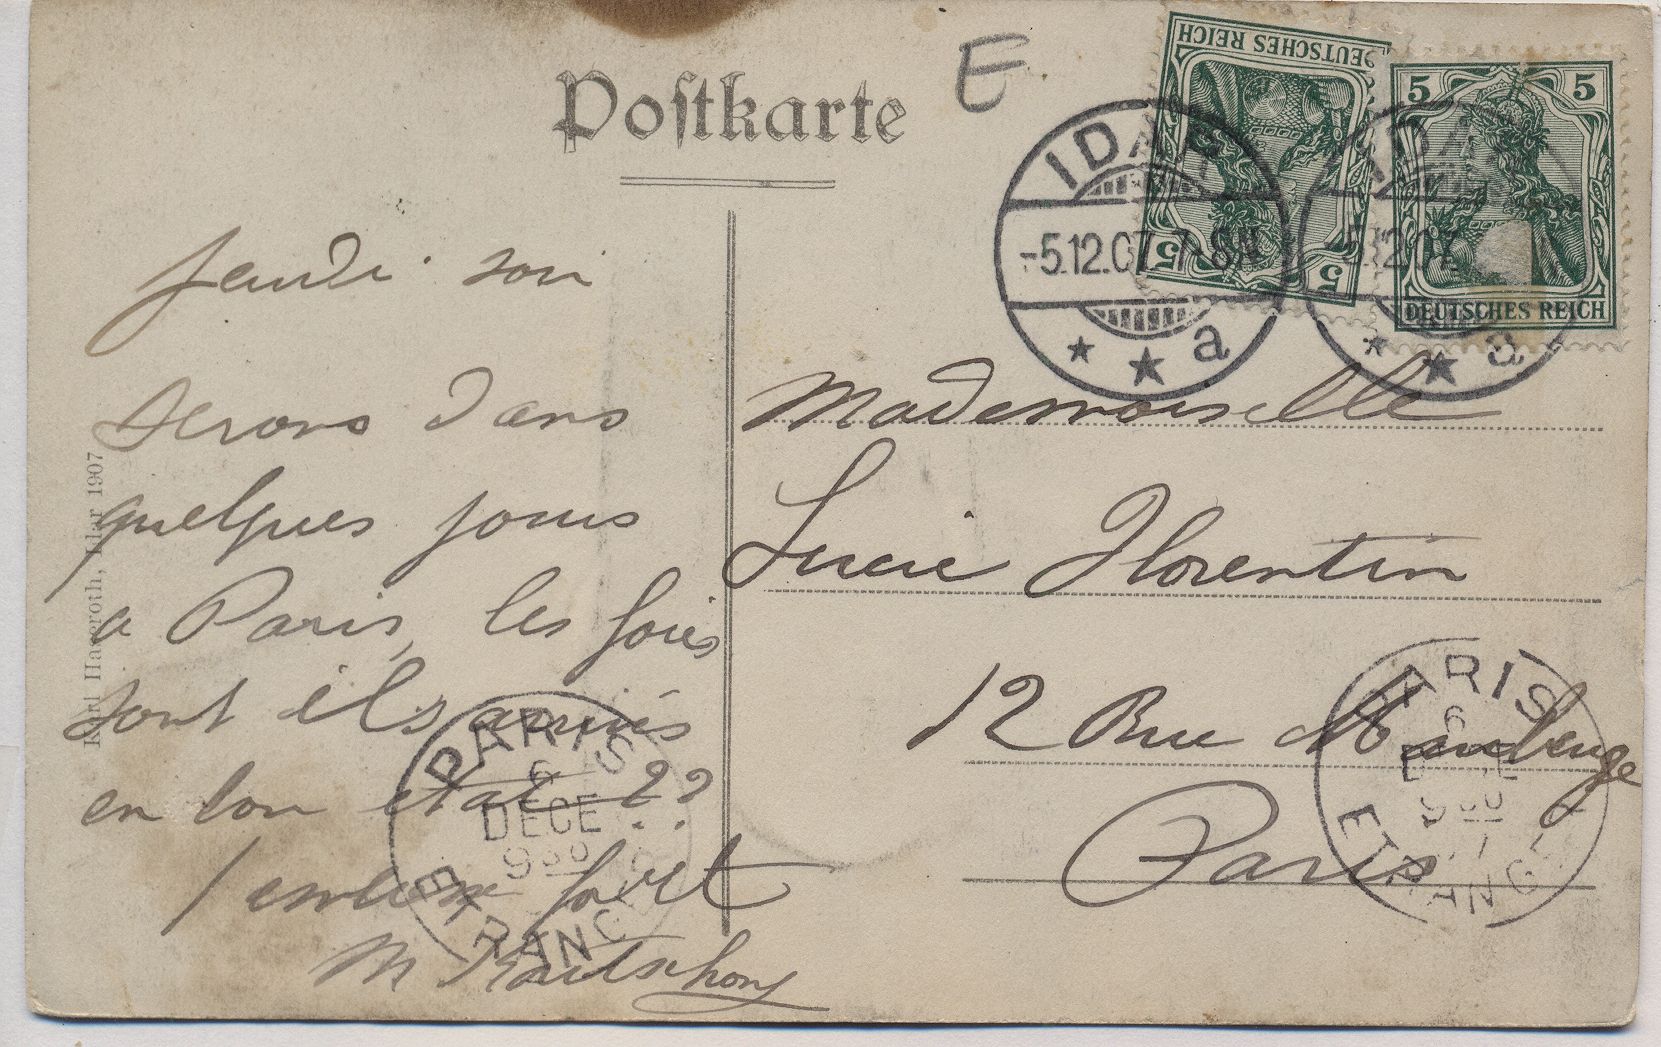 Postkarte
E
DEUTSCHES REICH
5 5
5 5
DEUTSCHES REICH
IDAR
-5.12.07. 7-8N
* * a
IDAR
-5.12.07
* * a
Jeudi soir
Serons dans
quelques jours
a Paris, les foies
sont ils arrivés
en bon état ??
J'embrasse fort
M
Mademoiselle
Lucie Florentin
12 Rue Maubeuge
Paris
PARIS
6
DECE
9 30
ETRANGER
PARIS
6
DECE
9 30
ETRANGER
Karl Hasproth, Idar 1907